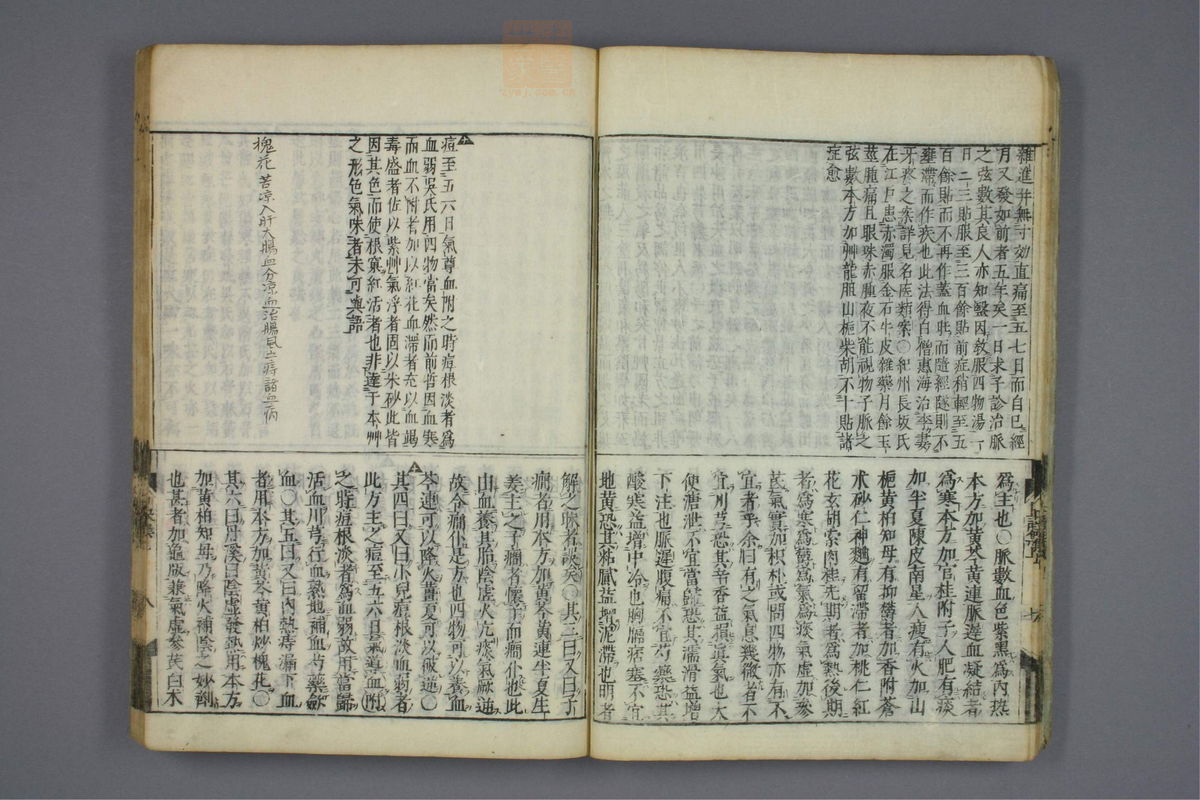 雜進并無寸効直痛至五七日而自已經
月又發如前者五年矣一日求予診治脈
之弦數其良人亦知毉因敎服四物湯一
日二三貼服至三百餘貼前症稍輕至五
百餘貼而不再作蓋血旺而隨經隧則不
壅滯而作疾也此法得白僧惠海治李妻
牙疼之案詳見名医類案○紀州長坂氏
在江戶患赤濁服金石牛皮雜藥月餘玉
莖腫痛且眼珠赤腫夜不能視物予脈之
弦數本方加艸龍胆山梔柴胡不十貼諸
症愈
爲主也○脈數血色紫黑爲內熱
本方加黃芩黃連脈遲血凝結者
爲寒本方加官桂附子人肥有痰
加半夏陳皮南星人瘦有火加山
梔黃柏知母有抑鬱者加香附蒼
朮砂仁神麯有留滯者加桃仁紅
花玄胡索肉桂先期者爲熱後期
者爲寒爲鬱爲氣爲痰氣虛加參
芪氣實加枳朴或問四物亦有不
宜者乎余曰有之氣息幾微者不
宜川芎恐其辛香益損眞氣也大
便溏泄不宜當歸恐其濡滑益增
下注也脈遲腹痛不宜芍藥恐其
酸寒益增中冷也胸膈痞塞不宜
地黃恐其粘膩益增泥滯也明者
痘至五六日氣尊血附之時痘根淡者爲
血弱吳氏用四物當矣然而前哲因血寒
而血不附者加以紅花血滯者充以血竭
毒盛者佐以紫艸氣浮者固以朱砂此皆
因其色而使根窠紅活者也非達于本艸
之形色氣味者未可與語
槐花 苦凉入肝大腸血分凉血治腸風上痔諸血病
解之昧者誤矣○其三曰又曰子
癇者用本方加黃芩黃連半夏生
姜主之子癇者僵下血癇仆也此
由血養其胎陰虛火亢痰氣厥逆
故令癇仆是方也四物可以養血
芩連可以降火薑夏可以破逆○
其四曰又曰小兒痘根淡血弱者
此方主之痘至五六日氣尊血附
之時痘根淡者爲血弱故用當歸
活血川芎行血熟地補血芍藥斂
血○其五曰又曰內熱痔漏下血
者用本方加黃芩黃柏炒槐花○
其六曰丹溪曰陰虛發熱用本方
加黃柏知母乃降火補陰之妙劑
也甚者加龜版兼氣虛參芪白朮